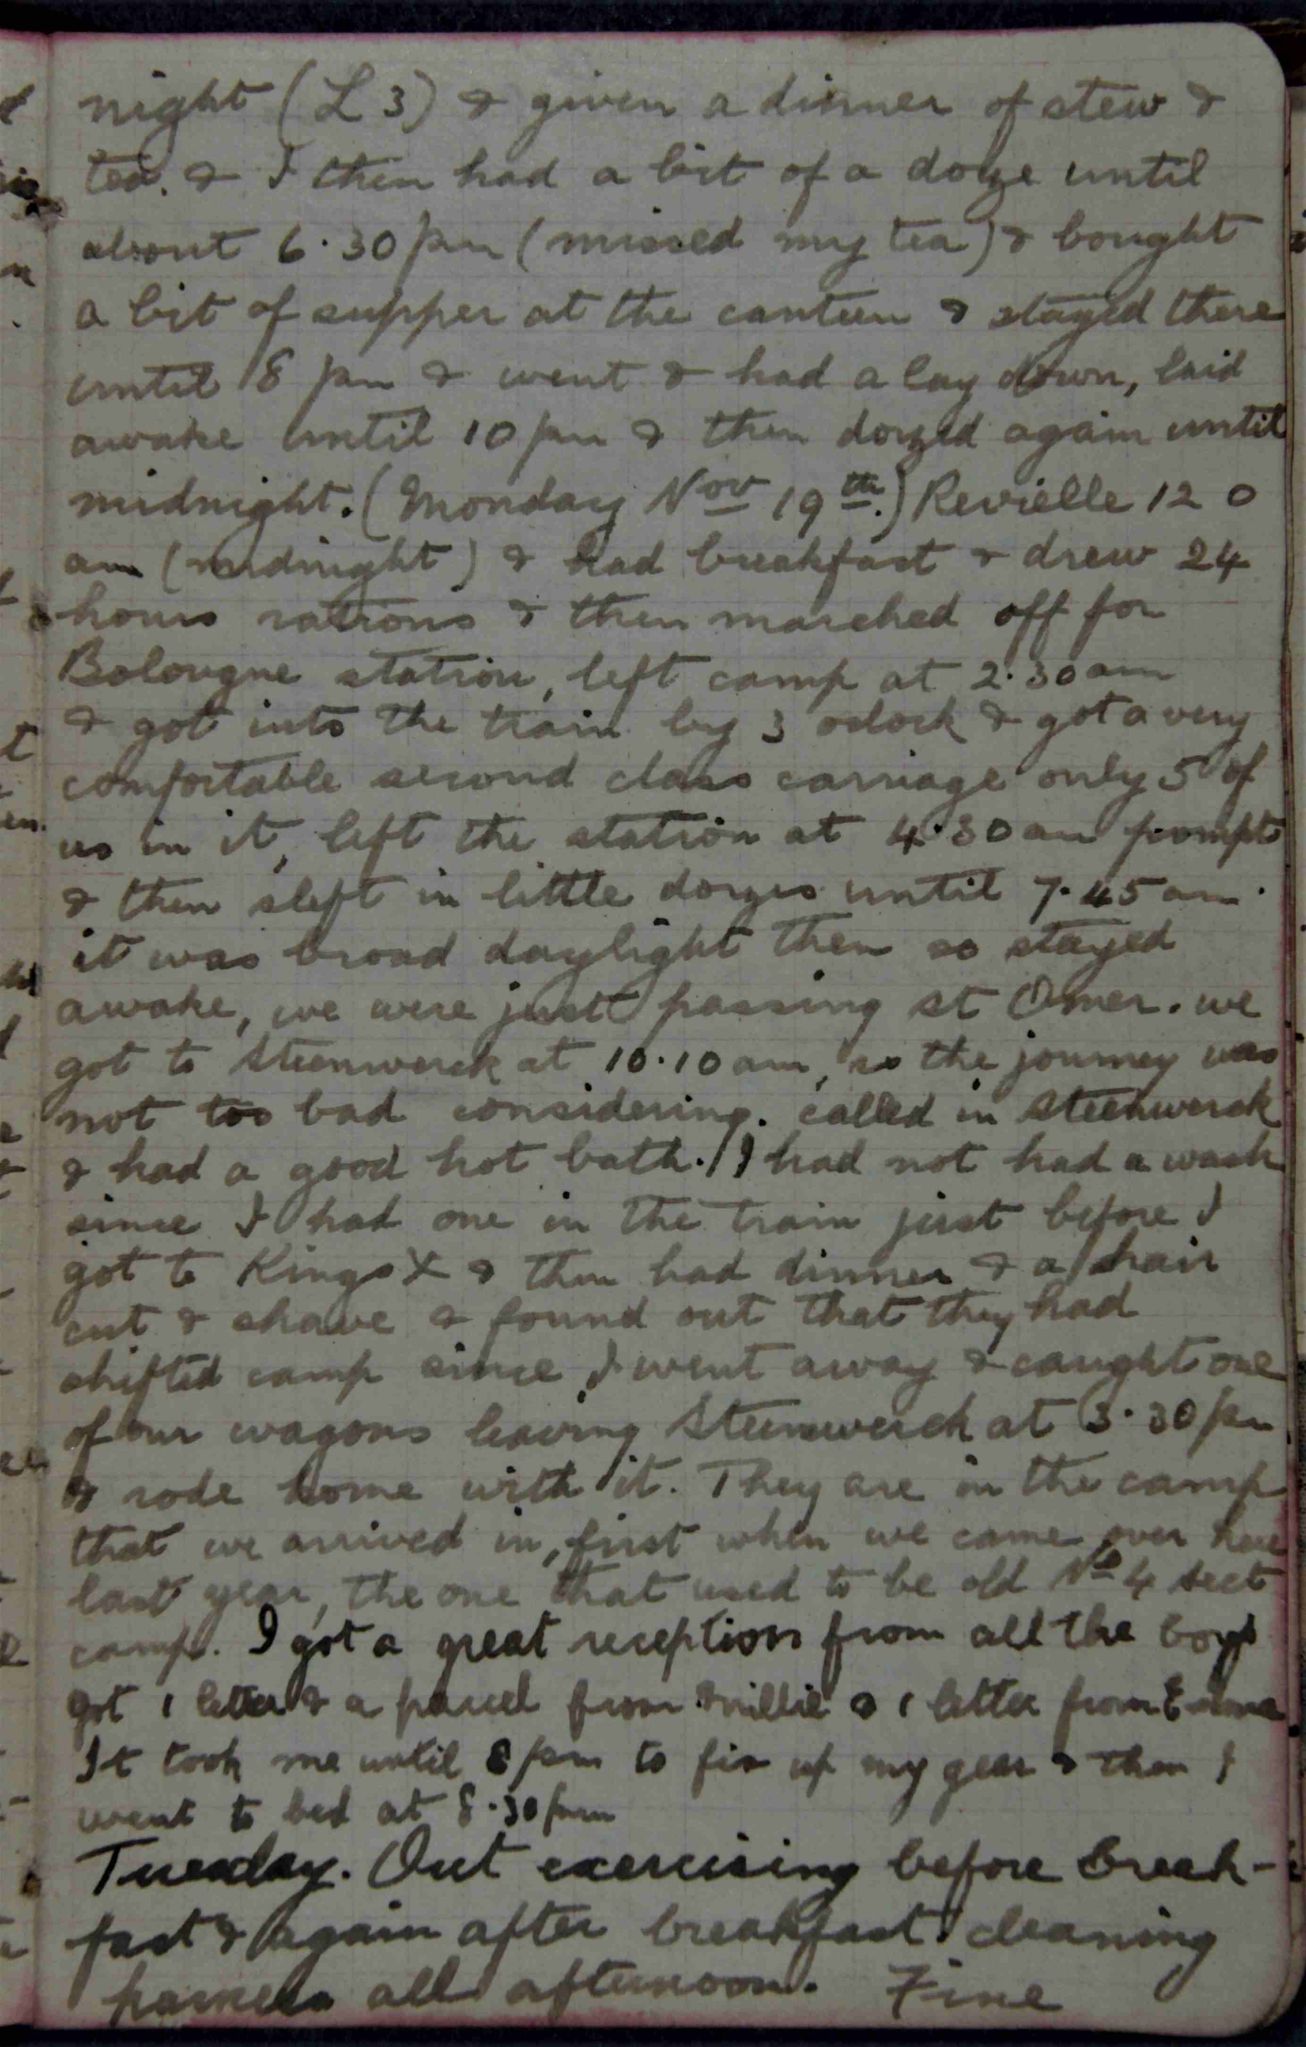 night (L 3) & given a dinner of stew &
tea. & I then had a bit of a doze until
about 6.30 pm (missed my tea) & bought
a bit of supper at the canteen & stayed there
until 8 pm & went & had a lay down, laid
awake until 10 pm & then dozed again until
midnight. (Monday Nov 19th.) Revielle 12 0
am (midnight) & had breakfast & drew 24
hours rations & then marched off for
Bolougne station, left camp at 2.30 am
& got into the train by 3 oclock & got a very
comfortable second class carriage only 5 of
us in it, left the station at 4.30 am prompt
& then slept in little dozes until 7.45 am.
it was broad daylight then so stayed
awake, we were just passing St Omer. we
got to Steenwerck at 10.10 am, so the journey was
not too bad considering. called in Steenwerck
& had a good hot bath. I had not had a wash
since I had one in the train just before I
got to Kings X & then had dinner & a hair
cut & shave & found out that they had
shifted camp since I went away & caught one
of our wagons leaving Steenwerck at 3.30 pm
& rode home with it. They are in the camp
that we arrived in, first when we came over here
last year, the one that used to be old No 4 sect
camp. I got a great reception from all the boys
got 1 letter & a parcel from Millie & 1 letter from Emma
It took me until 8 pm to fix up my gear & then I
went to bed at 8.30 pm
Tuesday. Out exercising before break-
fast & again after breakfast. cleaning
harness all afternoon. Fine